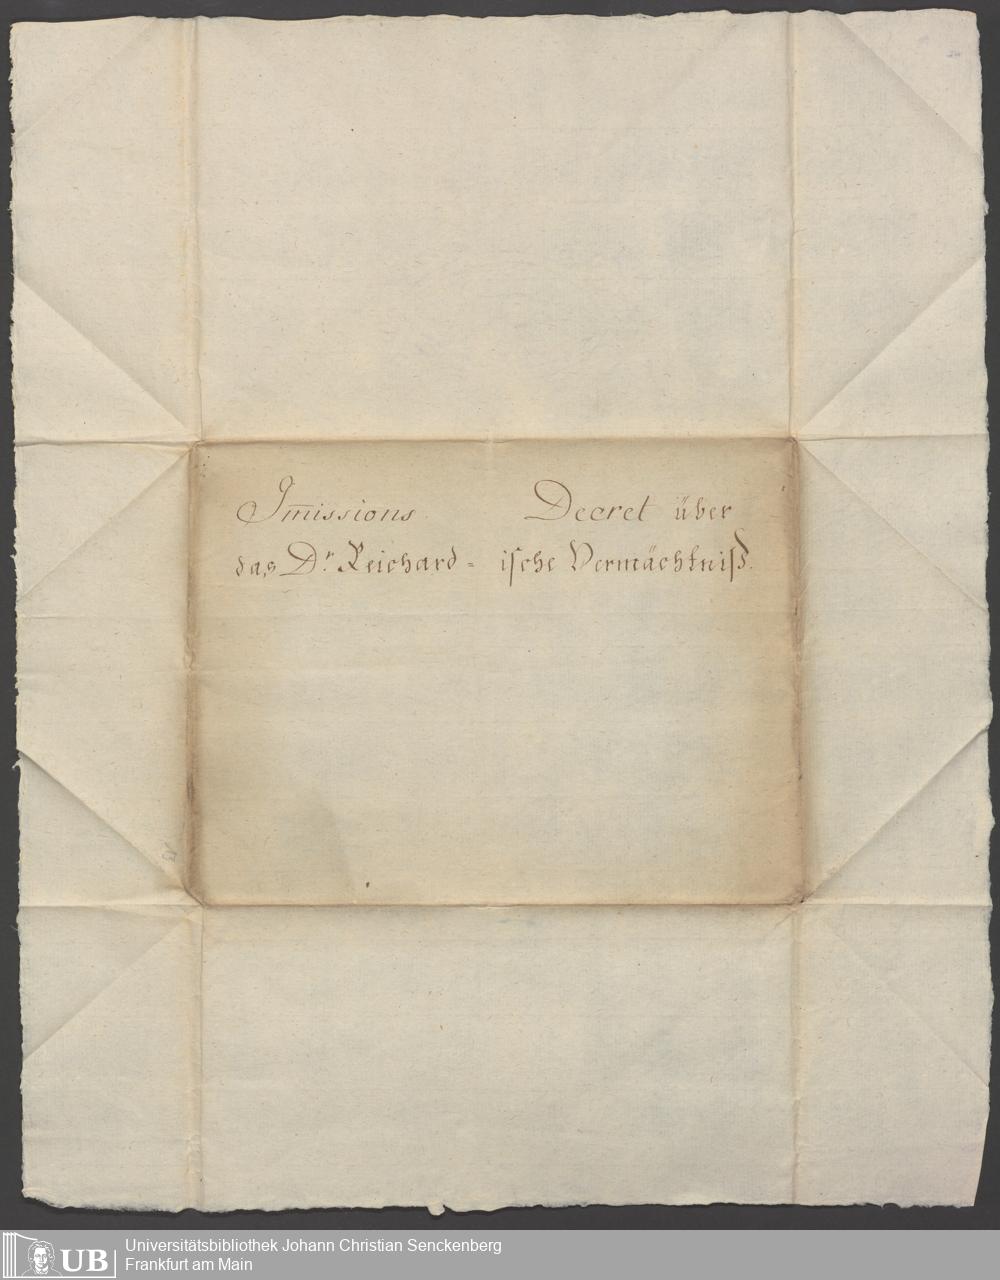 Im̅issions Decret über
das Dr Reichard= ische Vermächtniß.
UB
Universitätsbibliothek Johann Christian Senckenberg
Frankfurt am Main